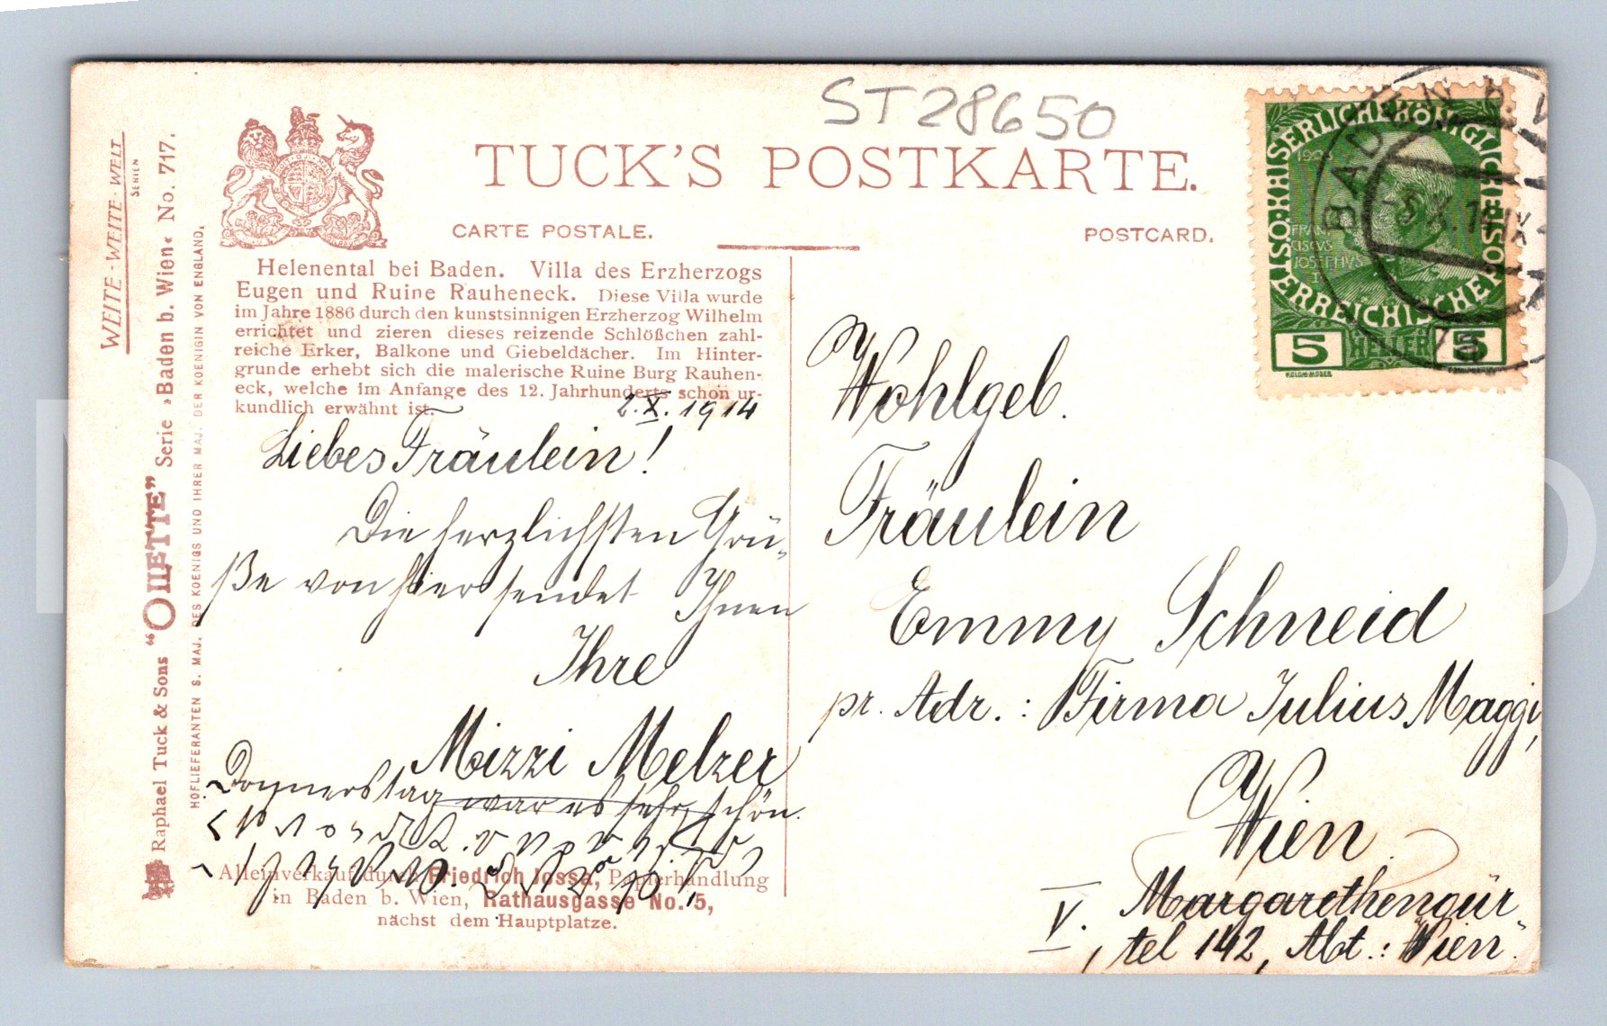 ST28650
TUCK'S POSTKARTE.
CARTE POSTALE.
POSTCARD.
WEITE-WEITE-WELT
SERIEN
Raphael Tuck & Sons "OILETTE" Serie »Baden b. Wien« No. 717.
HOFLIEFERANTEN S. MAJ. DES KOENIGS UND IHRER MAJ. DER KOENIGIN VON ENGLAND.
Helenental bei Baden. Villa des Erzherzogs
Eugen und Ruine Rauheneck. Diese Villa wurde
im Jahre 1886 durch den kunstsinnigen Erzherzog Wilhelm
errichtet und zieren dieses reizende Schlößchen zahl-
reiche Erker, Balkone und Giebeldächer. Im Hinter-
grunde erhebt sich die malerische Ruine Burg Rauhen-
eck, welche im Anfange des 12. Jahrhunderts schon ur-
kundlich erwähnt ist.
2.X.1914
Liebes Fräulein!
Die herzlichsten Grü-
ße von hier sendet Ihnen
Ihre
Mizzi Melzer
Donnerstag war es sehr schön.
Alleinverkauf durch Friedrich Jossa, Papierhandlung
in Baden b. Wien, Rathausgasse No. 5,
nächst dem Hauptplatze.
KAISERLICHE KÖNIGLICHE
ÖSTERREICHISCHE
1908
FRAN
CISCVS
JOSEPHVS
5 HELLER 5
BADEN
Wohlgeb.
Fräulein
Emmy Schneid
pr. Adr.: Firma Julius Maggi,
Wien
V. Margarethengür
tel 142, Abt.: "Wien".